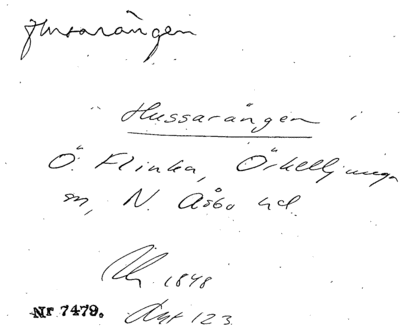 Hussarängen
Hussarängen i
Ö. Flinka, Örkelljunga
sn, N. Åsbo hd.
1848
Nr 7479. Akt 123